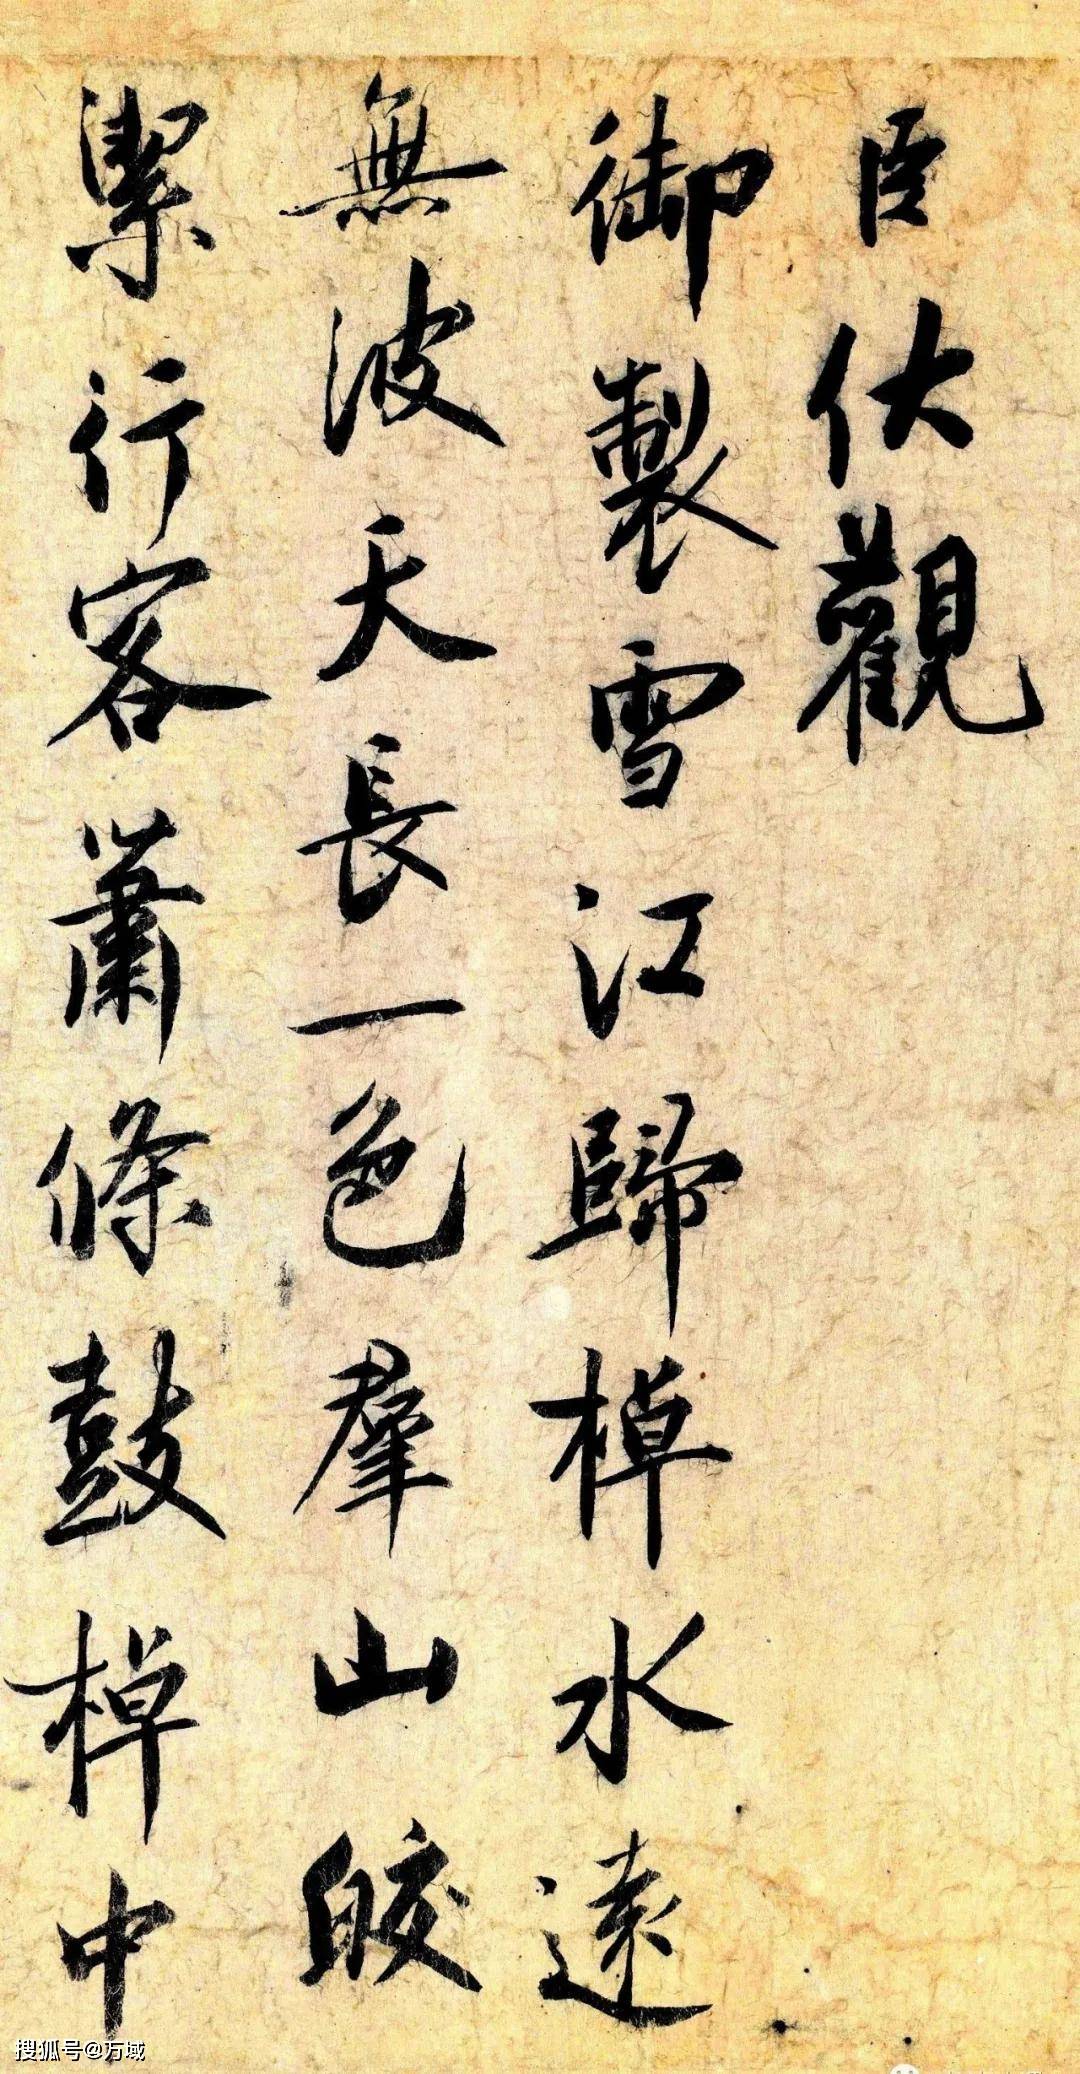 臣伏觀
御製雪江歸棹水遠
無波天長一色羣山皎
潔行客蕭條鼓棹中
搜狐号@万域